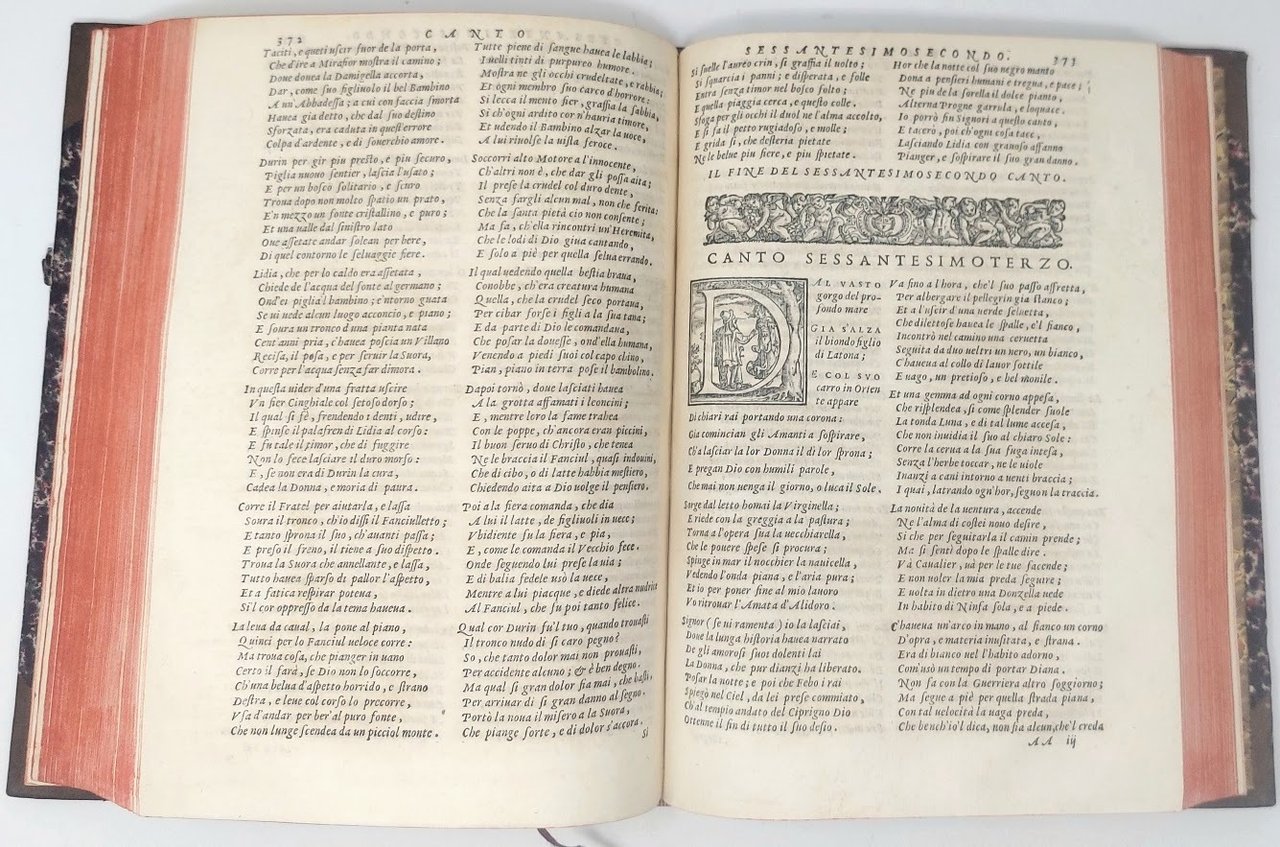 372
CANTO
Taciti, e queti uscir fuor de la porta,
Che d'ire a Mirafior mostra il camino;
Doue douea la Damigella accorta,
Dar, come suo figliuolo il bel Bambino
A un'Abbadessa; a cui con faccia smorta
Hauea gia detto, che dal suo destino
Sforzata, era caduta in quest'errore
Colpa d'ardente, e di souerchio amore.
Durin per gir piu presto, e piu securo,
Piglia nuouo sentier, lascia l'usato;
E per un bosco solitario, e scuro
Troua dopo non molto spatio un prato,
E'n mezzo un fonte cristallino, e puro;
Et una ualle dal sinistro lato
Oue assetate andar solean per bere,
Di quel contorno le seluaggie fiere.
Lidia, che per lo caldo era assetata,
Chiede de l'acqua del fonte al germano;
Ond'ei piglia'l bambino; e'ntorno guata
Se ui uede alcun luogo acconcio, e piano;
E soura un tronco d'una pianta nata
Cent'anni pria, c'hauea poscia un Villano
Recisa, il posa, e per seruir la Suora,
Corre per l'acqua senza far dimora.
In questa uider d'una fratta uscire
Vn fier Cinghiale col setoso dorso;
Il qual si fè, frendendo i denti, udire,
E spinse il palafren di Lidia al corso:
E fu tale il timor, che di fuggire
Non lo fece lasciare il duro morso:
E, se non era di Durin la cura,
Cadea la Donna, e moria di paura.
Corre il Fratel per aiutarla, e lassa
Soura il tronco, ch'io dissi il Fanciulletto;
E tanto sprona il suo, ch'auanti passa;
E preso il freno, il tiene a suo dispetto.
Troua la Suora che annellante, e lassa,
Tutto hauea sparso di pallor l'aspetto,
Et a fatica respirar poteua,
Si'l cor oppresso da la tema haueua.
La leua da caual, la pone al piano,
Quinci per lo Fanciul ueloce corre:
Ma troua cosa, che pianger in uano
Certo il farà, se Dio non lo soccorre,
Ch'una belua d'aspetto horrido, e strano
Destra, e leue col corso lo precorre,
Vsa d'andar per ber'al puro fonte,
Che non lunge scendea da un picciol monte.
Tutte piene di sangue hauea le labbia;
I uelli tinti di purpureo humore.
Mostra ne gli occhi crudeltate, e rabbia;
Et ogni membro suo carco d'horrore:
Si lecca il mento fier, graffia la sabbia,
Si ch'ogni ardito cor n'hauria timore,
Et udendo il Bambino alzar la uoce,
A lui riuolse la uista feroce.
Soccorri alto Motore a l'innocente,
Ch'altri non è, che dar gli possa aita;
Il prese la crudel col duro dente,
Senza fargli alcun mal, non che ferita:
Che la santa pietà cio non consente;
Ma fa, ch'ella rincontri un'Heremita,
Che le lodi di Dio giua cantando,
E solo a piè per quella selua errando.
Il qual uedendo quella bestia braua,
Conobbe, ch'era creatura humana
Quella, che la crudel seco portaua,
Per cibar forse i figli a la sua tana;
E da parte di Dio le comandaua,
Che posar la douesse, ond'ella humana,
Venendo a piedi suoi col capo chino,
Pian, piano in terra pose il bambolino.
Dapoi tornò, doue lasciati hauea
A la grotta affamati i leoncini;
E, mentre loro la fame trahea
Con le poppe, ch'ancora eran piccini,
Il buon seruo di Christo, che tenea
Ne le braccia il Fanciul, quasi indouini,
Che di cibo, o di latte habbia mestiero,
Chiedendo aita a Dio uolge il pensiero.
Poi a la fiera comanda, che dia
A lui il latte, de figliuoli in uece;
Vbidiente fu la fiera, e pia,
E, come le comanda il Vecchio fece.
Onde seguendo lui prese la uia;
E di balia fedele usò la uece,
Mentre a lui piacque, e diede altra nudrice
Al Fanciul, che fu poi tanto felice.
Qual cor Durin fu'l tuo, quando trouasti
Il tronco nudo di si caro pegno?
So, che tanto dolor mai non prouasti,
Per accidente alcuno; & è ben degno.
Ma qual si gran dolor fia mai, che basti,
Per arriuar di si gran danno al segno.
Portò la noua il misero a la Suora,
Che piange forte, e di dolor s'accora.
Si
SESSANTESIMOSECONDO.
373
Si suelle l'aureo crin, si graffia il uolto;
Si squarcia i panni; e disperata, e folle
Entra senza timor nel bosco folto;
E quella piaggia cerca, e questo colle.
Sfoga per gli occhi il duol ne l'alma accolto,
E si fa il petto rugiadoso, e molle;
E grida si, che desteria pietate
Ne le belue piu fiere, e piu spietate.
Hor che la notte col suo negro manto
Dona a pensieri humani e tregua, e pace;
Ne piu de la sorella il dolce pianto,
Alterna Progne garrula, e loquace.
Io porrò fin Signori a questo canto,
E tacerò, poi ch'ogni cosa tace,
Lasciando Lidia con grauoso affanno
Pianger, e sospirare il suo gran danno.
IL FINE DEL SESSANTESIMOSECONDO CANTO.
CANTO SESSANTESIMOTERZO.
DAL VASTO
gorgo del pro-
fondo mare
GIA S'ALZA
il biondo figlio
di Latona;
E COL SVO
carro in Orien
te appare
Di chiari rai portando una corona:
Gia comincian gli Amanti a sospirare,
Ch'a lasciar la lor Donna il dì lor sprona;
E pregan Dio con humili parole,
Che mai non uenga il giorno, o luca il Sole.
Surge dal letto homai la Virginella;
E riede con la greggia a la pastura;
Torna a l'opera sua la uecchiarella,
Che le pouere spese si procura;
Spinge in mar il nocchier la nauicella,
Vedendo l'onda piana, e l'aria pura;
Et io per poner fine al mio lauoro
Vo ritrouar l'Amata d'Alidoro.
Signor (se ui ramenta) io la lasciai,
Doue la lunga historia hauea narrato
De gli amorosi suoi dolenti lai
La Donna, che pur dianzi ha liberato.
Posar la notte; e poi che Febo i rai
Spiegò nel Ciel, da lei prese commiato,
Ch'al tempio andato del Ciprigno Dio
Ottenne il fin di tutto il suo desio.
Va fino a l'hora, che'l suo passo affretta,
Per albergare il pellegrin gia stanco;
Et a l'uscir d'una uerde seluetta,
Che dilettose hauea le spalle, e'l fianco,
Incontrò nel camino una ceruetta
Seguita da duo ueltri un nero, un bianco,
C'haueua al collo di lauor sottile
E uago, un pretioso, e bel monile.
Et una gemma ad ogni corno appesa,
Che risplendea, si come splender suole
La tonda Luna, e di tal lume accesa,
Che non inuidia il suo al chiaro Sole:
Corre la cerua a la sua fuga intesa,
Senza l'herbe toccar, ne le uiole
Inanzi a cani intorno a uenti braccia;
I quai, latrando ogn'hor, seguon la traccia.
La nouità de la uentura, accende
Ne l'alma di costei nouo desire,
Si che per seguitarla il camin prende;
Ma si sentì dopo le spalle dire.
Và Caualier, uà per le tue facende;
E non uoler la mia preda seguire;
E uolta in dietro una Donzella uede
In habito di Ninfa sola, e a piede.
C'haueua un'arco in mano, al fianco un corno
D'opra, e materia inusitata, e strana.
Era di bianco uel l'habito adorno,
Com'usò un tempo di portar Diana.
Non fa con la Guerriera altro soggiorno;
Ma segue a piè per quella strada piana,
Con tal uelocità la uaga preda,
Che bench'io'l dica, non fia alcun, che'l creda
AA iij